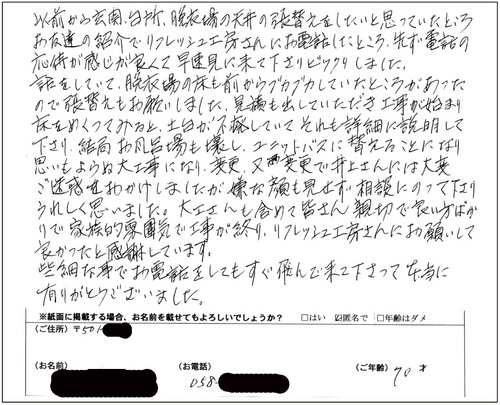 以前から玄関、台所、脱衣場の天井の張替えをしたいと思っていたところ
お友達の紹介でリフレッシュ工房さんにお電話したところ、先ず電話の
応待が感じが良くて早速見に来て下さりビックリしました。
話をしていて、脱衣場の床も前からブカブカしていたところがあった
ので張替えもお願いしました。見積も出していただき工事が始まり
床をめくってみると、土台が不腐していてそれも詳細に説明して
下さり、結局お風呂場も壊し、ユニットバスに替えることになり
思いもよらぬ大工事になり、変更、又変更で井上さんには大変
ご迷惑をおかけしましたが嫌な顔も見せず相談にのって下さり
うれしく思いました。大工さんも含めて皆さん親切で良い方ばか
りで家族的雰囲気で工事が終り、リフレッシュ工房さんにお願いして
良かったと感謝しています。
些細な事でお電話をしてもすぐ飛んで来て下さって本当に
有りがとうございました。
※紙面に掲載する場合、お名前を載せてもよろしいでしょうか？ □はい ☑匿名で □年齢はダメ
（ご住所）〒501-
（お名前） （お電話） 058- （ご年齢） 70 才